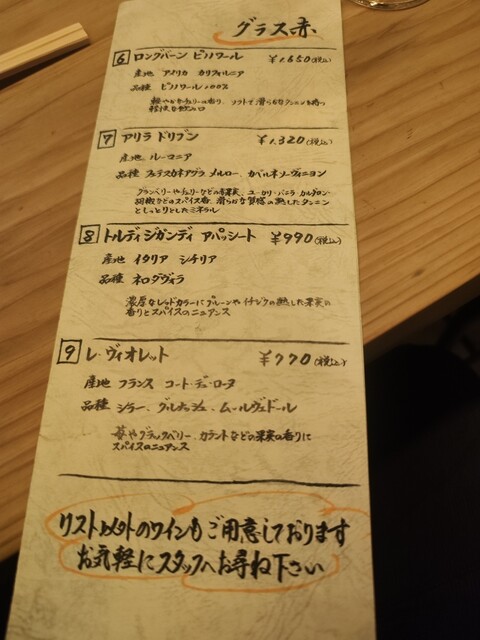 グラス赤
6 ロングバーン ピノノワール ¥1,650(税込)
産地 アメリカ カリフォルニア
品種 ピノノワール100%
7 アリラ ドリブン ¥1,320(税込)
産地 ルーマニア
品種 フェテスカネアグラ メルロー、カベルネソーヴィニヨン
クランベリーやチェリーなどの赤果実、ユーカリ・バニラ・カルダモン
胡椒などのスパイス香、滑らかな質感の熟したタンニン
としっとりとしたミネラル
8 トルディジガンディ アパッシート ¥990(税込)
産地 イタリア シチリア
品種 ネロダヴィラ
濃厚なレッドカラーにプルーンやイチジクの熟した果実の
香りとスパイスのニュアンス
9 レ・ヴィオレット ¥770(税込)
産地 フランス コート・デュ・ローヌ
品種 シラー、グルナッシュ、ムールヴェドール
苺やブラックベリー、カラントなどの果実の香りに
スパイスのニュアンス
リスト以外のワインもご用意しております
お気軽にスタッフへお尋ね下さい